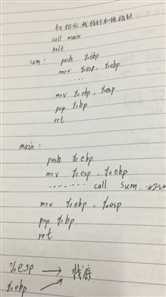 初始化栈指针和帧指针
call main
halt
sum: push %ebp
mov %esp, %ebp
mov %ebp, %esp
pop %ebp
ret
main:
push %ebp
mov %esp, %ebp
------- call sum
mov %ebp, %esp
pop %ebp
ret
%esp → 栈底
%ebp